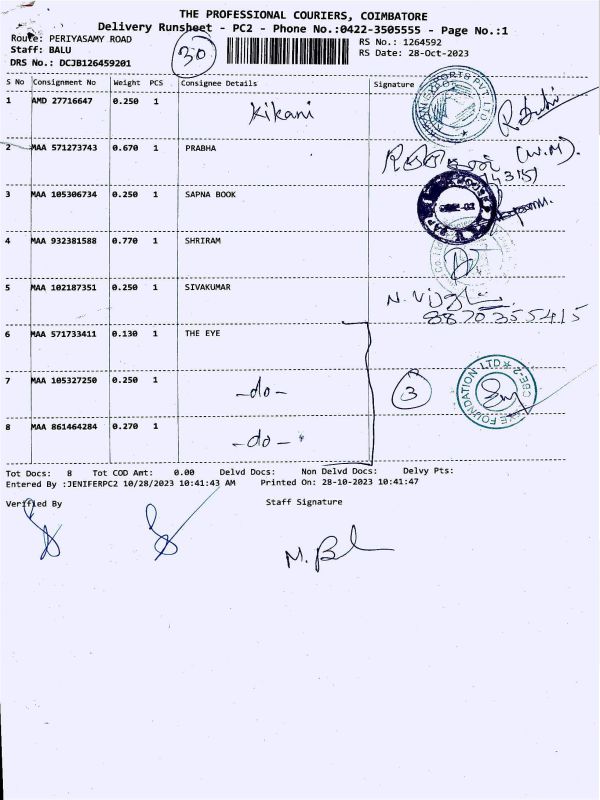 THE PROFESSIONAL COURIERS, COIMBATORE
Delivery Runsheet - PC2 - Phone No.:0422-3505555 - Page No.:1
Route: PERIYASAMY ROAD
Staff: BALU
DRS No.: DCJB126459201
30
RS No.: 1264592
RS Date: 28-Oct-2023
S No Consignment No Weight PCS Consignee Details Signature
1 AMD 27716647 0.250 1 Kikani
2 MAA 571273743 0.670 1 PRABHA
(W.M).
3 MAA 105306734 0.250 1 SAPNA BOOK
4 MAA 932381588 0.770 1 SHRIRAM
5 MAA 102187351 0.250 1 SIVAKUMAR
8870355415
6 MAA 571733411 0.130 1 THE EYE
7 MAA 105327250 0.250 1 -do- 3
FOUNDATION LTD CBE-2
8 MAA 861464284 0.270 1 -do-
Tot Docs: 8 Tot COD Amt: 0.00 Delvd Docs: Non Delvd Docs: Delvy Pts:
Entered By :JENIFERPC2 10/28/2023 10:41:43 AM Printed On: 28-10-2023 10:41:47
Verified By Staff Signature